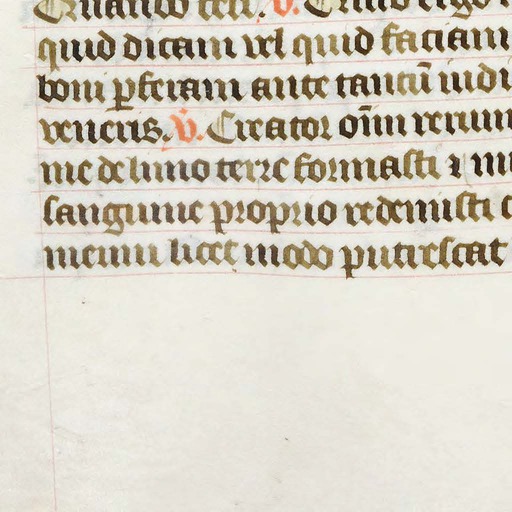 Quando celi. V. Quid ergo
quid dicam vel quid faciam
boni pferam ante tantū iudi
veneris. V. Creator oīm rerum
me de limo terre formasti ⁊ mi
sanguine proprio redemisti c
meum licet modo putrescat